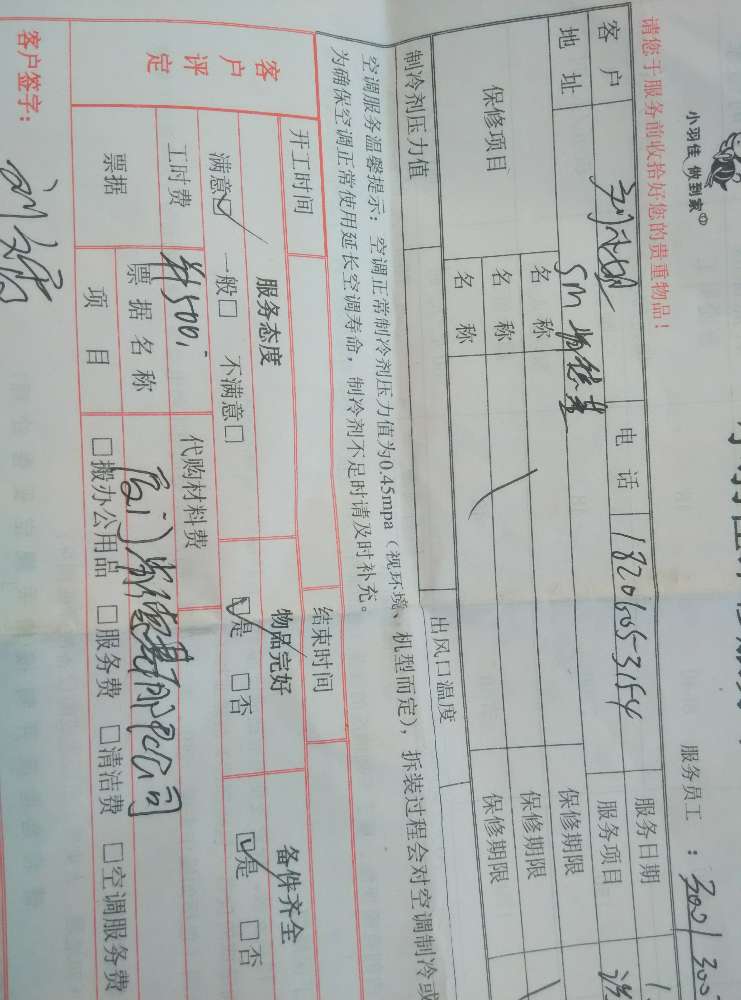 小羽佳 做到家
服务员工：3001 300
请您于服务前收拾好您的贵重物品！
客户 电话 18206053154 服务日期
地址 SM 服务项目
保修项目 名称 保修期限
名称 保修期限
名称 保修期限
制冷剂压力值 出风口温度
空调服务温馨提示：空调正常制冷剂压力值为0.45mpa（视环境、机型而定），拆装过程会对空调制冷或
为确保空调正常使用延长空调寿命，制冷剂不足时请及时补充。
开工时间 结束时间
客户评定 服务态度 物品完好 备件齐全
满意☑ 一般□ 不满意□ ☑是 □否 ☑是 □否
工时费 500 代购材料费
票据 票据名称 厦门 公司
项目 □搬办公用品 □服务费 □清洁费 □空调服务费
客户签字：